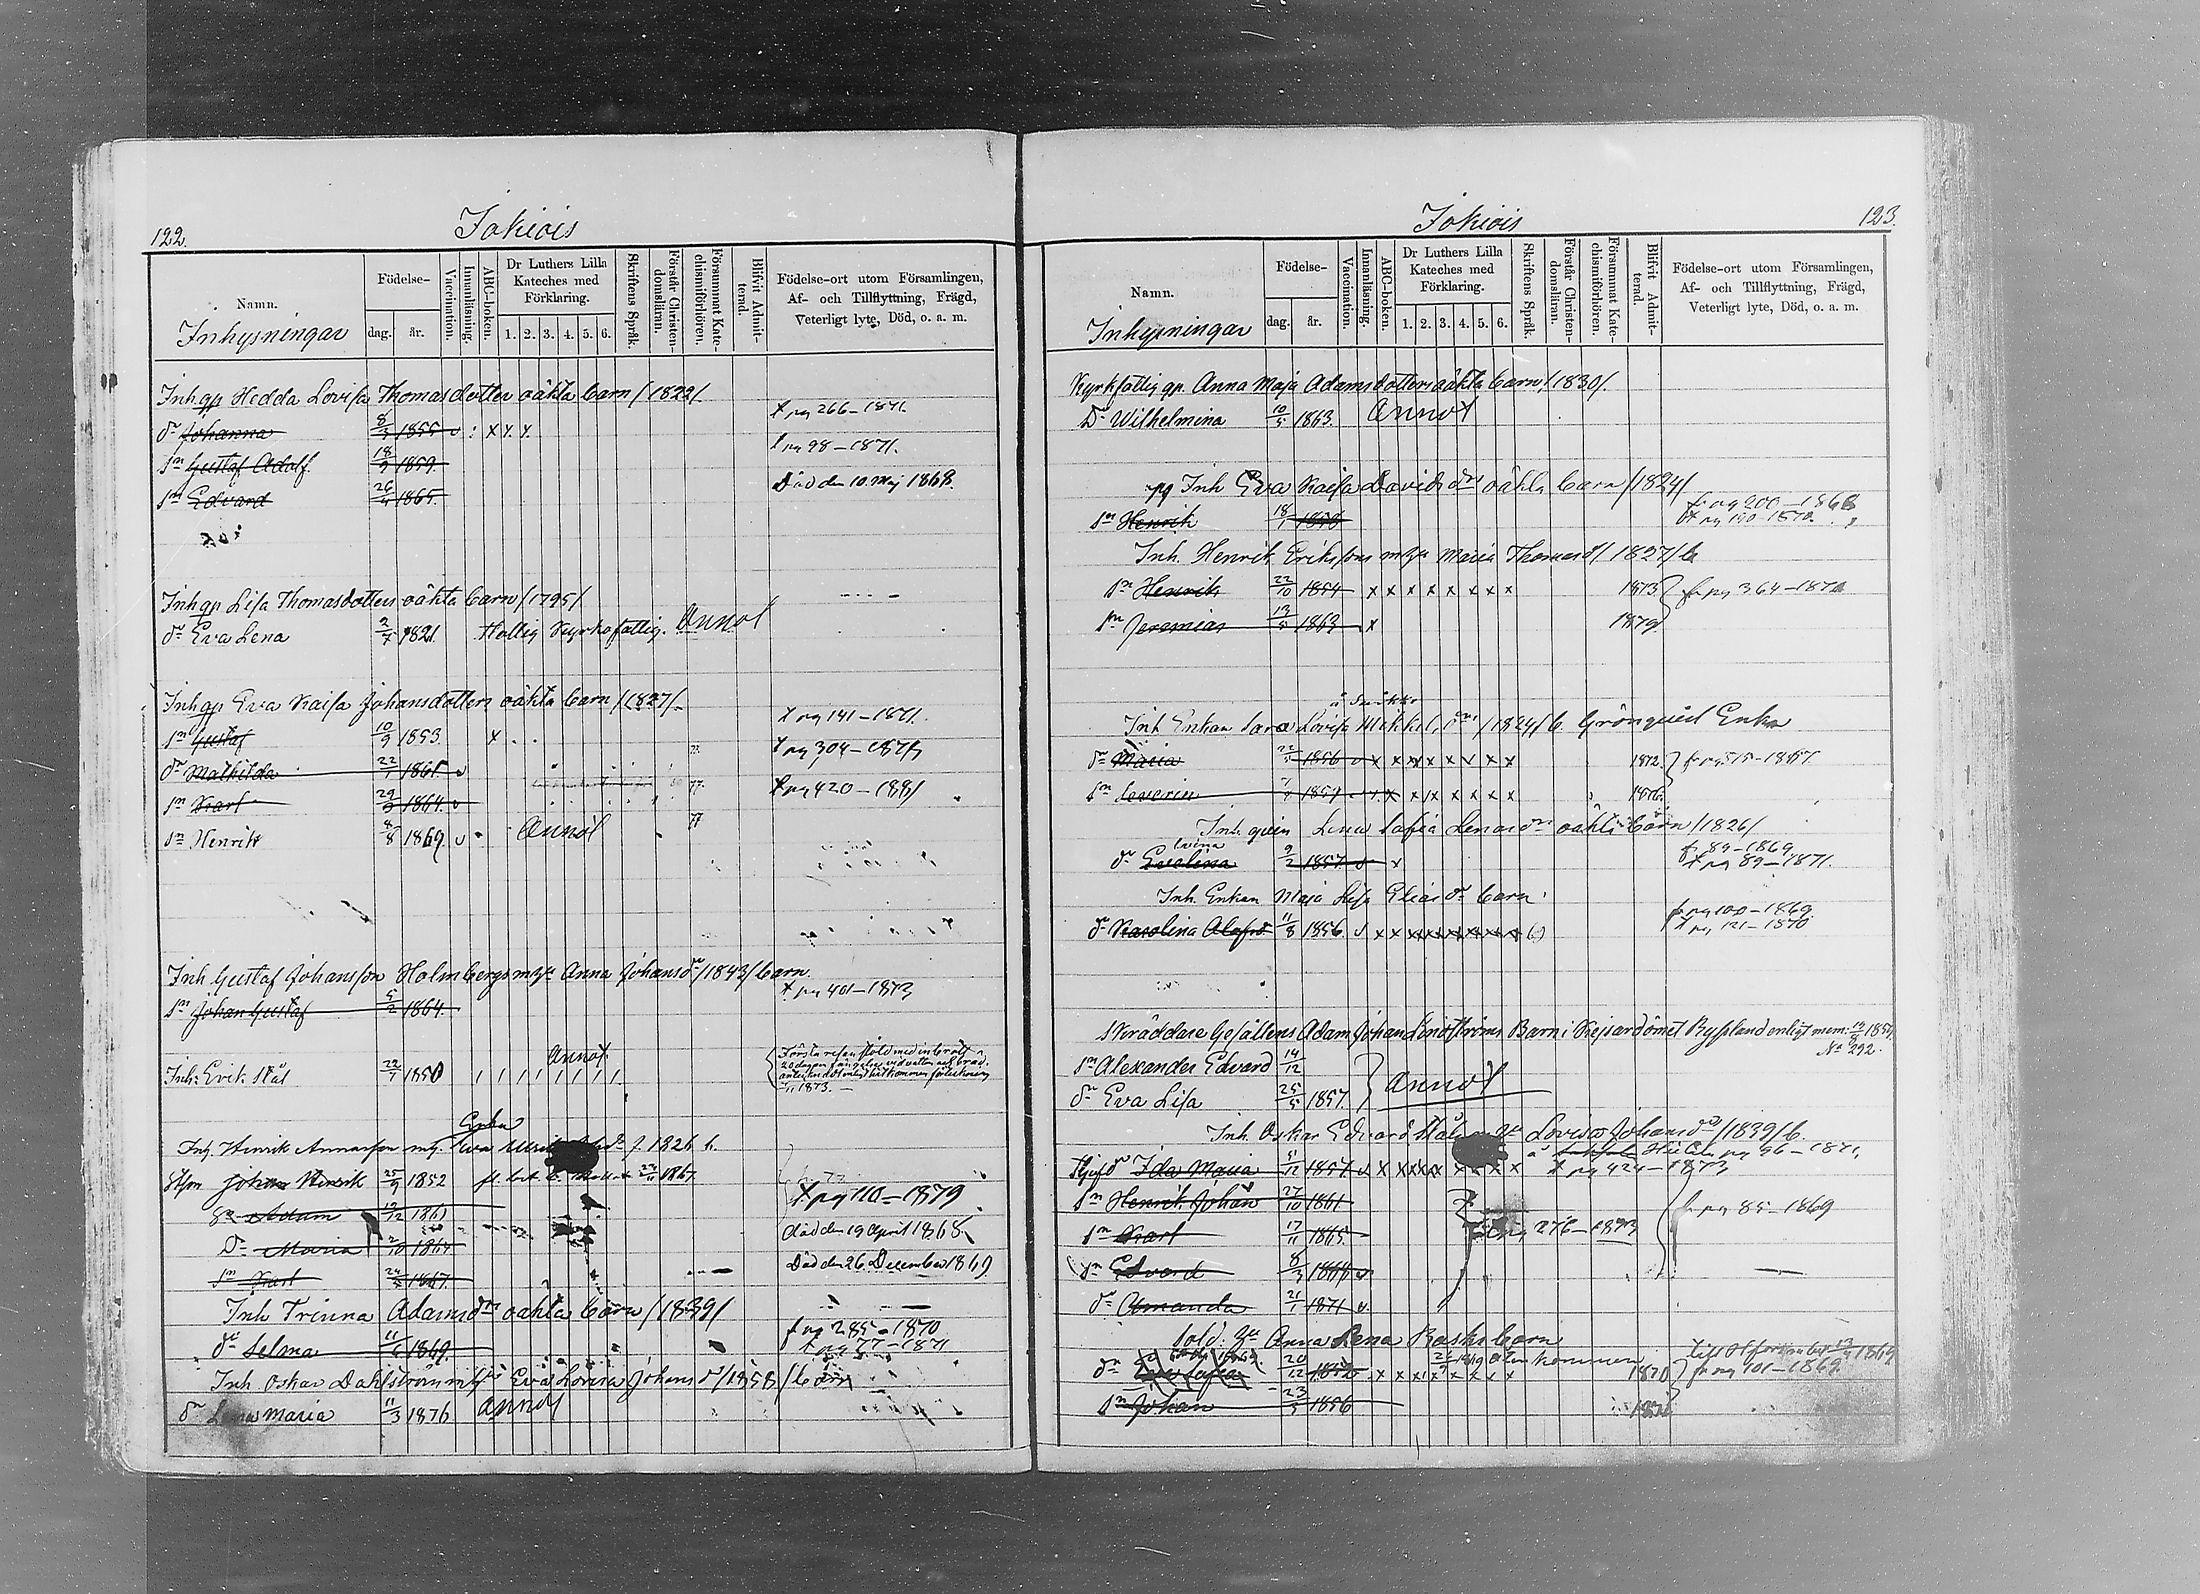 122.
Jokiois
Namn.
Inhysningar
Födelse-
dag. år.
Vaccination.
Innanläsning.
ABC-boken.
Dr Luthers Lilla Kateches med Förklaring.
1. 2. 3. 4. 5. 6.
Skriftens Språk.
Förstår Christendomsläran.
Försummat Katechismiförhören.
Blifvit Admitterad.
Födelse-ort utom Församlingen,
Af- och Tillflyttning, Frägd,
Veterligt lyte, Död, o. a. m.
Inh qp Hedda Lovisa Thomasdotter oäkta barn /1829/.
dr Johanna 8/3 1855 x pg 266-1871.
sn Gustaf Adolf 18/9 1859 pg 98-1871.
sn Edvard 26/4 1865. Död den 10 Maj 1868.
Inh qp Lisa Thomasdotters oäkta barn /1795/
dr Eva Lena 2/7 1821. Kyrkofattig. Annot
Inh qp Eva Kaisa Johansdotters oäkta barn /1827/.
sn Gustaf 10/9 1853. x pg 141-1871.
dr Mathilda 22/1 1861. pg 304-1877
sn Karl 29/9 1864. pg 420-1881
sn Henrik 8/8 1869. Annot
Inh Gustaf Johansson Holmbergs Anna Johans dr /1843/ barn.
x pg 401-1873
sn Johan Gustaf 5/2 1864.
Annot
Första resan stöld med inbrott
Inh: Erik Stål 22/7 1850
1873.
Enka
Inh. Henrik Annasson Eva 1826 b.
Johan Henrik 25/9 1852
x pg 110-1879
sn Adam 12/12 1861
död den 19 April 1868
Dr Maria 2/10 1864
Död den 26 December 1869
sn Karl 24/5 1867.
Inh Trinna Adams dr oäkta barn /1839/
dr Selma 11/6 1869. f pg 285-1870
x pg 77-1871
Inh Oskar Dahlström Eva Lovisa Johans d /1858/ barn
dr Lena Maria 11/3 1876 Annot
123.
Jokiois
Namn.
Inhysningar
Födelse-
dag. år.
Vaccination.
Innanläsning.
ABC-boken.
Dr Luthers Lilla Kateches med Förklaring.
1. 2. 3. 4. 5. 6.
Skriftens Språk.
Förstår Christendomsläran.
Försummat Katechismiförhören.
Blifvit Admitterad.
Födelse-ort utom Församlingen,
Af- och Tillflyttning, Frägd,
Veterligt lyte, Död, o. a. m.
Kyrkfattig qp. Anna Maja Adamsdotters oäkta barn /1830/.
Dr Wilhelmina 10/5 1863. Annot
qp Inh Eva Kaisa Davids drs oäkta barn /1824/
fr pg 200-1868
sn Henrik 18/1 1858
Inh. Henrik Erikssons Maria Thomas d /1827/ b
sn Henrik 22/10 1854 x x x x x x x x 1873 fr pg 364-1872
sn Jeremias 13/5 1863 x 1879.
Inh Enkan Sara Lovisa Mikkels drs /1824/ b. Grönqvist Enka
dr Maria 22/5 1856 x x x x x x x x 1872. fr pg 515-1867
sn Severin 7/9 1859 x x x x x x x 1876.
Inh. qvin Lena Sofia Lenas drs oäkta barn /1826/
dr Evelina 9/2 1857. x f. 89-1869
x pg 89-1871.
Inh. Enkan Maja Lisa Elias dr barn
fr pg 100-1869
dr Karolina 11/8 1856. x pg 121-1870
Skräddare Gesällens Adam Johan Lindströms Barn i Kejsardömet Ryssland enligt mem:
No 292.
sn Alexander Edvard 14/12
dr Eva Lisa 25/5 1857. Annot
Inh. Oskar Edvard Stål Lovisa Johans dr /1839/ b.
pg 96-1871
dr Ida Maria 5/12 1857 x pg 424-1873
sn Henrik Johan 27/10 1861 fr pg 85-1869
sn Karl 17/11 1865. pg 276-1873
sn Edvard 8/3 1868
dr Amanda 21/1 1871
Sold. Anna Lena Rasks barn
dr Sofia 20/12 1852 1870 fr pg 101-1869
sn Johan 23/5 1856